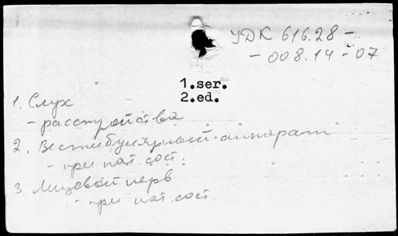 УДК 616.28 -
- 008.14 - 07
1.ser.
2.ed.
1. Слух
- расстройства
2. Вестибулярный аппарат
- при пат. сост.
3. Лицевой нерв
- при пат. сост.